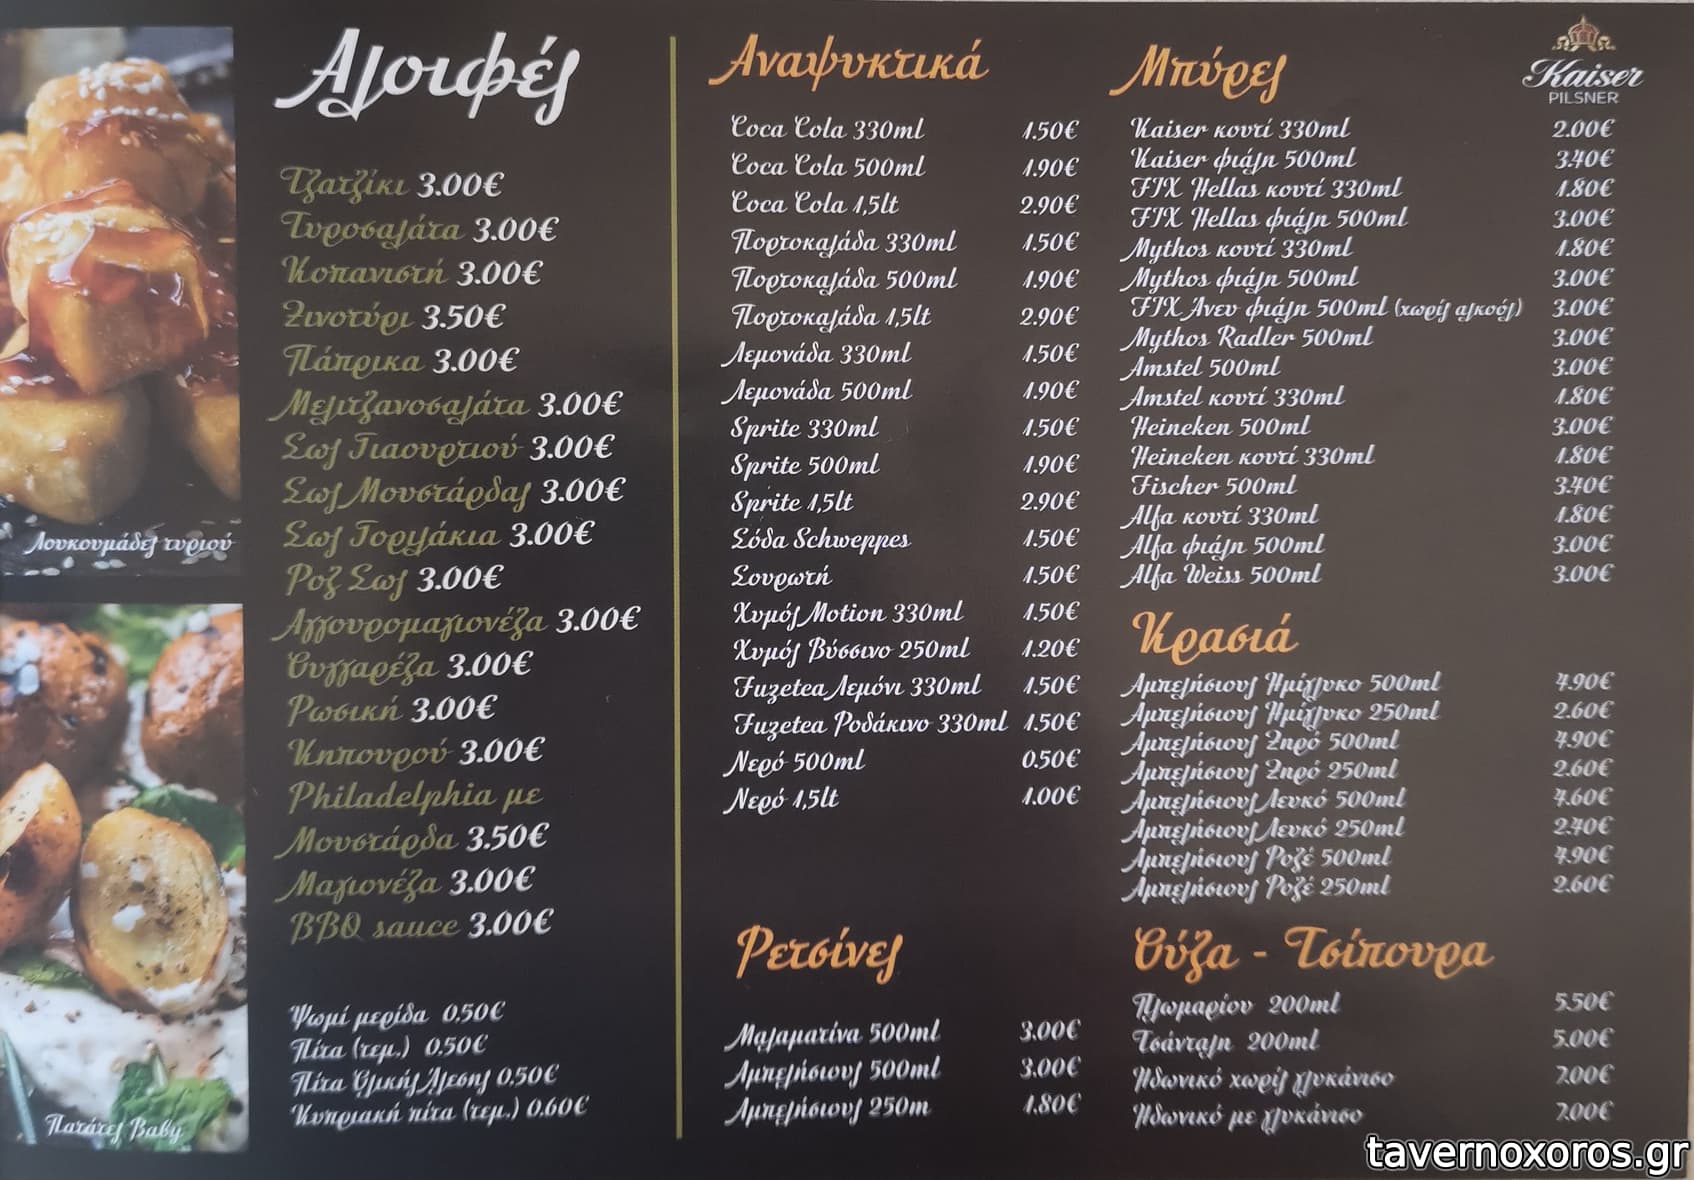 Λουκουμάδες τυριού
Πατάτες Baby
Αλοιφές
Τζατζίκι 3.00€
Τυροσαλάτα 3.00€
Κοπανιστή 3.00€
Ξινοτύρι 3.50€
Πάπρικα 3.00€
Μελιτζανοσαλάτα 3.00€
Σως Γιαουρτιού 3.00€
Σως Μουστάρδας 3.00€
Σως Γορίλάκια 3.00€
Ροζ Σως 3.00€
Αγγουρομαγιονέζα 3.00€
Ουγγαρέζα 3.00€
Ρωσική 3.00€
Κηπουρού 3.00€
Philadelphia με
Μουστάρδα 3.50€
Μαγιονέζα 3.00€
BBQ sauce 3.00€
Ψωμί μερίδα 0.50€
Πίτα (τεμ.) 0.50€
Πίτα Ολικής Άλεσης 0.50€
Κυπριακή πίτα (τεμ.) 0.60€
Αναψυκτικά
Coca Cola 330ml 1.50€
Coca Cola 500ml 1.90€
Coca Cola 1,5lt 2.90€
Πορτοκαλάδα 330ml 1.50€
Πορτοκαλάδα 500ml 1.90€
Πορτοκαλάδα 1,5lt 2.90€
Λεμονάδα 330ml 1.50€
Λεμονάδα 500ml 1.90€
Sprite 330ml 1.50€
Sprite 500ml 1.90€
Sprite 1,5lt 2.90€
Σόδα Schweppes 1.50€
Σουρωτή 1.50€
Χυμός Motion 330ml 1.50€
Χυμός Βύσσινο 250ml 1.20€
Fuzetea Λεμόνι 330ml 1.50€
Fuzetea Ροδάκινο 330ml 1.50€
Νερό 500ml 0.50€
Νερό 1,5lt 1.00€
Ρετσίνες
Μαλαματίνα 500ml 3.00€
Αμπελήσιους 500ml 3.00€
Αμπελήσιους 250m 1.80€
Μπύρες
Kaiser
PILSNER
Kaiser κουτί 330ml 2.00€
Kaiser φιάλη 500ml 3.40€
FIX Hellas κουτί 330ml 1.80€
FIX Hellas φιάλη 500ml 3.00€
Mythos κουτί 330ml 1.80€
Mythos φιάλη 500ml 3.00€
FIX Άνευ φιάλη 500ml (χωρίς αλκοόλ) 3.00€
Mythos Radler 500ml 3.00€
Amstel 500ml 3.00€
Amstel κουτί 330ml 1.80€
Heineken 500ml 3.00€
Heineken κουτί 330ml 1.80€
Fischer 500ml 3.40€
Alfa κουτί 330ml 1.80€
Alfa φιάλη 500ml 3.00€
Alfa Weiss 500ml 3.00€
Κρασιά
Αμπελήσιους Ημίγλυκο 500ml 4.90€
Αμπελήσιους Ημίγλυκο 250ml 2.60€
Αμπελήσιους Ξηρό 500ml 4.90€
Αμπελήσιους Ξηρό 250ml 2.60€
Αμπελήσιους Λευκό 500ml 4.60€
Αμπελήσιους Λευκό 250ml 2.40€
Αμπελήσιους Ροζέ 500ml 4.90€
Αμπελήσιους Ροζέ 250ml 2.60€
Ούζα - Τσίπουρα
Πλωμαρίου 200ml 5.50€
Τσάνταλη 200ml 5.00€
Ηδωνικό χωρίς γλυκάνισο 7.00€
Ηδωνικό με γλυκάνισο 7.00€
tavernoxoros.gr